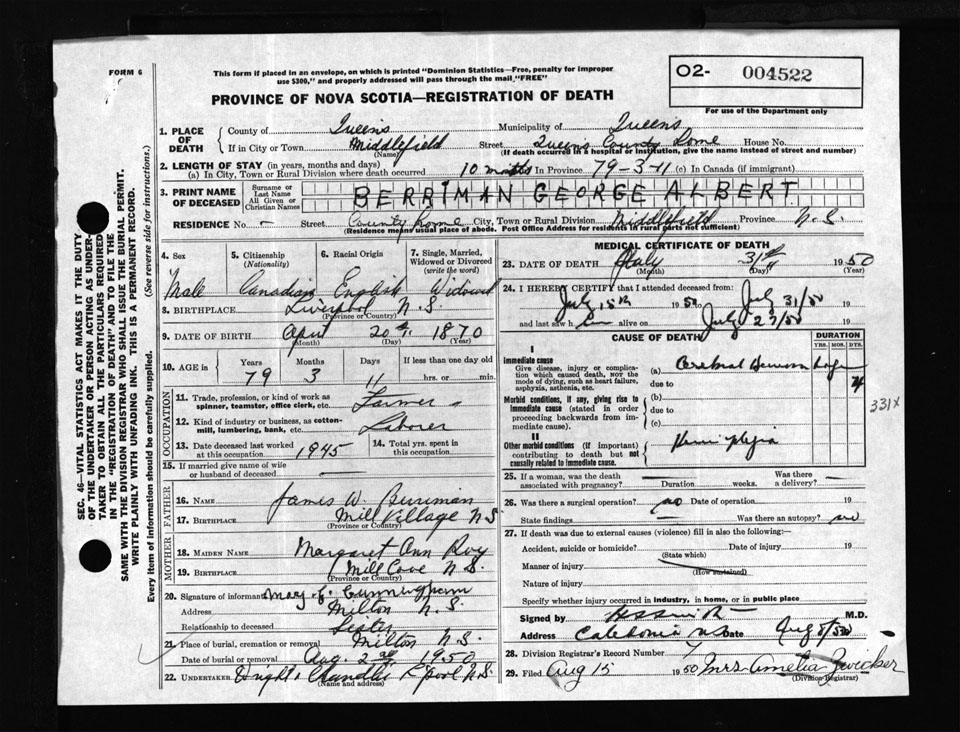 FORM 6
This form if placed in an envelope, on which is printed "Dominion Statistics—Free, penalty for improper
use $300," and properly addressed will pass through the mail "FREE"
O2- 004522
For use of the Department only
PROVINCE OF NOVA SCOTIA—REGISTRATION OF DEATH
SEC. 46—VITAL STATISTICS ACT MAKES IT THE DUTY
OF THE UNDERTAKER OR PERSON ACTING AS UNDER-
TAKER TO OBTAIN ALL THE PARTICULARS REQUIRED
IN THE "REGISTRATION OF DEATH" AND TO FILE THE
SAME WITH THE DIVISION REGISTRAR WHO SHALL ISSUE THE BURIAL PERMIT.
WRITE PLAINLY WITH UNFADING INK. THIS IS A PERMANENT RECORD.
Every item of information should be carefully supplied. (See reverse side for instructions.)
1. PLACE OF DEATH
County of Queens Municipality of Queens
If in City or Town Middlefield (Name) Street Queens County Home House No.
(If death occurred in a hospital or institution, give the name instead of street and number)
2. LENGTH OF STAY (in years, months and days)
(a) In City, Town or Rural Division where death occurred 10 months In Province 79-3-11 (c) In Canada (if immigrant)
3. PRINT NAME OF DECEASED
Surname or Last Name
All Given or Christian Names
BERRIMAN GEORGE ALBERT
RESIDENCE No. - Street County Home City, Town or Rural Division Middlefield Province N.S.
(Residence means usual place of abode. Post Office Address for residents in rural parts not sufficient)
4. Sex Male
5. Citizenship (Nationality) Canadian
6. Racial Origin English
7. Single, Married, Widowed or Divorced (write the word) Widowed
8. BIRTHPLACE Liverpool N.S.
(Province or Country)
9. DATE OF BIRTH April 20th 1870
(Month) (Day) (Year)
10. AGE in Years Months Days If less than one day old
79 3 11 hrs. or min.
OCCUPATION
11. Trade, profession, or kind of work as spinner, teamster, office clerk, etc. Farmer
12. Kind of industry or business, as cotton-mill, lumbering, bank, etc. Laborer
13. Date deceased last worked at this occupation 1945
14. Total yrs. spent in this occupation
15. If married give name of wife or husband of deceased
FATHER
16. NAME James W. Berriman
17. BIRTHPLACE Mill Village N.S.
(Province or Country)
MOTHER
18. MAIDEN NAME Margaret Ann Roy
19. BIRTHPLACE Mill Cove N.S.
(Province or Country)
20. Signature of informant May E. Cunningham
Address Milton N.S.
Relationship to deceased Sister
21. Place of burial, cremation or removal Milton N.S.
Date of burial or removal Aug. 2nd 1950
22. UNDERTAKER Chandler L'pool N.S.
(Name and address)
MEDICAL CERTIFICATE OF DEATH
23. DATE OF DEATH July 31st 1950
(Month) (Day) (Year)
24. I HEREBY CERTIFY that I attended deceased from:
July 15th 1950 to July 31/50 19
and last saw him alive on July 29/50 19
CAUSE OF DEATH
DURATION
YRS. MOS. DYS.
I
Immediate cause
Give disease, injury or complication which caused death, NOT the mode of dying, such as heart failure, asphyxia, asthenia, etc.
(a) Cerebral Hemorrhage
due to
Morbid conditions, if any, giving rise to immediate cause (stated in order proceeding backwards from immediate cause).
(b)
due to
(c)
331X
II
Other morbid conditions (if important) contributing to death but not causally related to immediate cause.
Hemiplegia
25. If a woman, was the death associated with pregnancy? Duration weeks. Was there a delivery?
26. Was there a surgical operation? no Date of operation 19
State findings Was there an autopsy? no
27. If death was due to external causes (violence) fill in also the following:
Accident, suicide or homicide? Date of injury 19
(State which)
Manner of injury
(How sustained)
Nature of injury
Specify whether injury occurred in industry, in home, or in public place
Signed by M.D.
Address Caledonia NS Date
28. Division Registrar's Record Number 7
29. Filed Aug 15 1950 Mrs Amelia Zwicker
(Division Registrar)